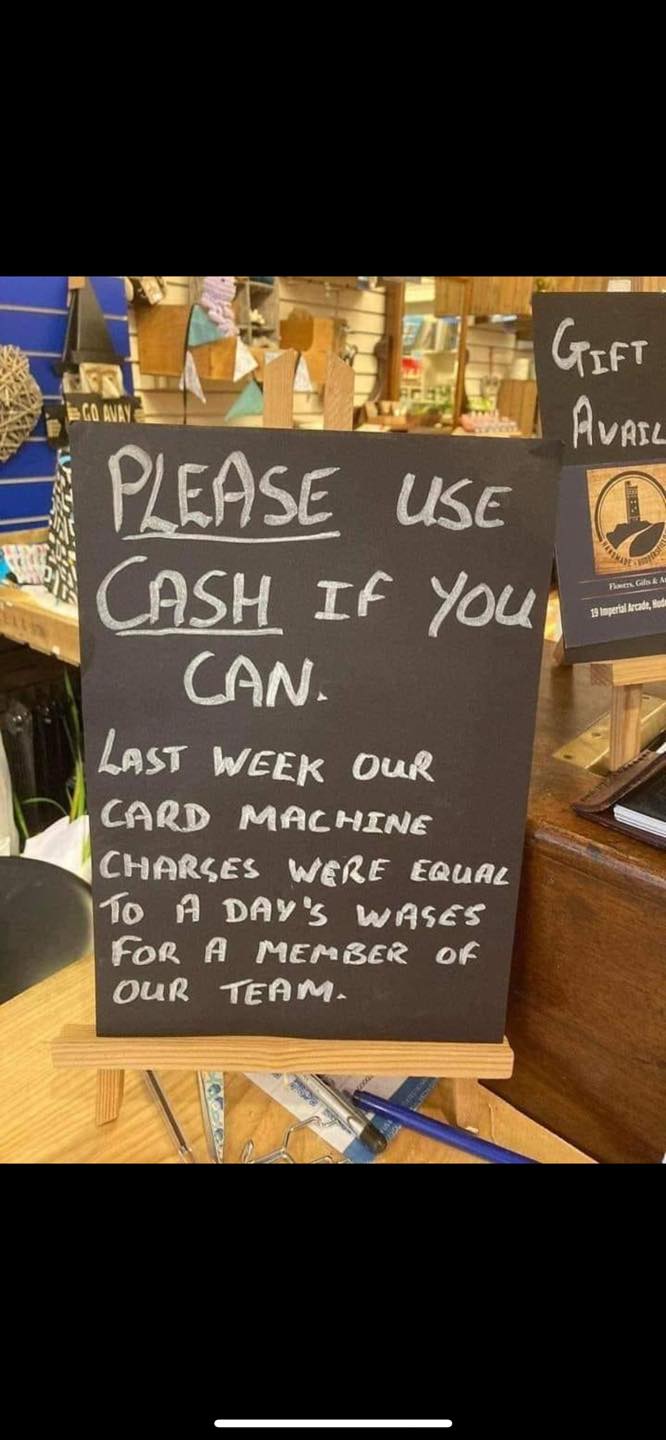 GO AWAY
PLEASE USE
CASH IF YOU
CAN.
LAST WEEK OUR
CARD MACHINE
CHARGES WERE EQUAL
TO A DAY'S WAGES
FOR A MEMBER OF
OUR TEAM.
GIFT
AVAIL
HANDMADE
Flowers, Gifts &
19 Imperial Arcade,